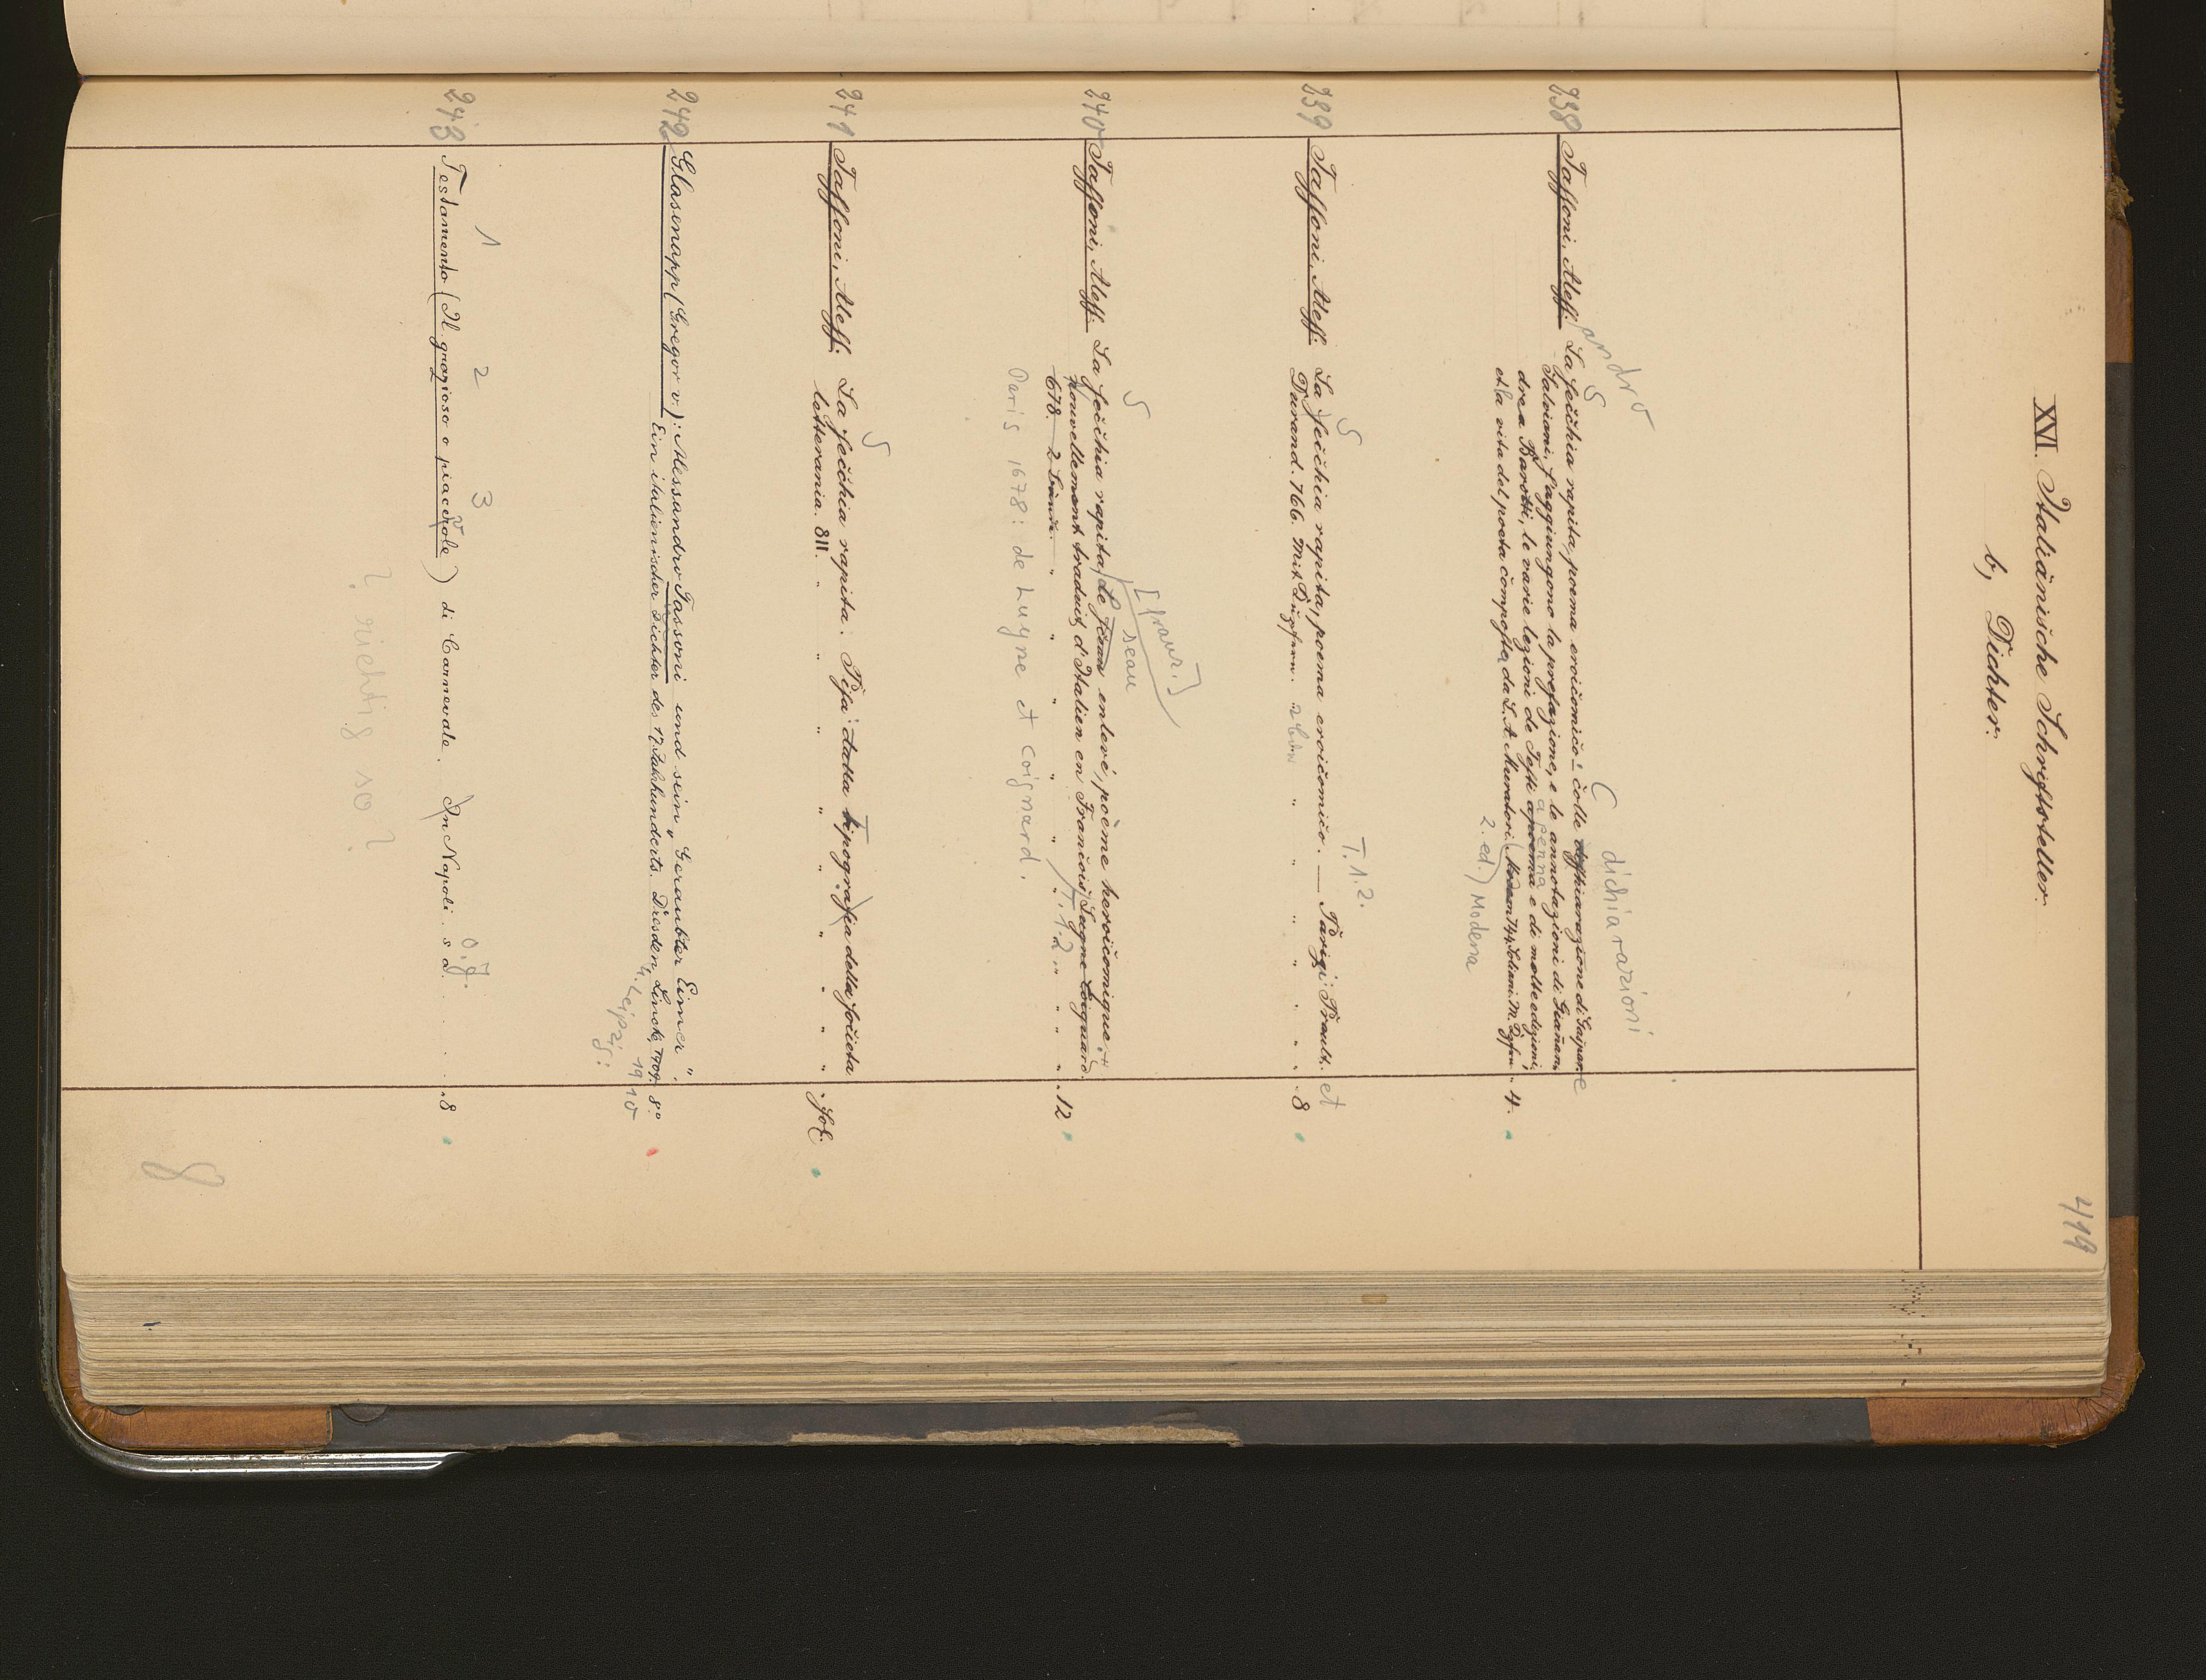 419
XVI. Italiänische Schriftsteller.
b, Dichter.
andro
S
C dichiarazioni
238 Taſſoni, Aleſſ. La ſecchia rapita, poema eroicomico: colle dichiarazione di Gaspare
Salviani, ſ'aggiungono la prefazione, e le annotazioni di Giañan-
drea Barotti, le varie lezioni de Teſti a penna e di molte edizioni;
et la vita del poeta compoſta da L. A. Muratori. Moden 744. Soliani. M. Kpfrn. 4.
2. ed.) Modena
S
T. 1.2.
239 Taſſoni, Aleſſ. La ſecchia rapita, poema eroicomico. — Parigi: Prault. et
Durand. 766. Mit Kupfern. " " " " " 8
[franz.]
S
seau
240 Taſſoni, Aleſſ. La ſecchia rapita / le ſçeau enlevé, poëme heroicomique.
nouvellement traduit d'Italien en François
678. 2 Bände. " " " " " T. 1.2 " " " 12
Paris 1678: de Luyne et Coignard.
S
T
241 Taſſoni, Aleſſ. La ſecchia rapita. Piſa: dalla tipografia della ſocieta
letterania. 811. " " " " " " " " fol.
242 Glasenapp (Gregor v.): Alessandro Tassoni und sein „Geraubter Eimer".
Ein italienischer Dichter des 17. Jahrhunderts. Dresden, Linck, 1909. 8°.
u. Leipzig: 1910
1 2 3
o. J.
243 Testamento (Il grazioso o piacevole) di Carnevale. In Napoli. s a . . . 8
? richtig so?